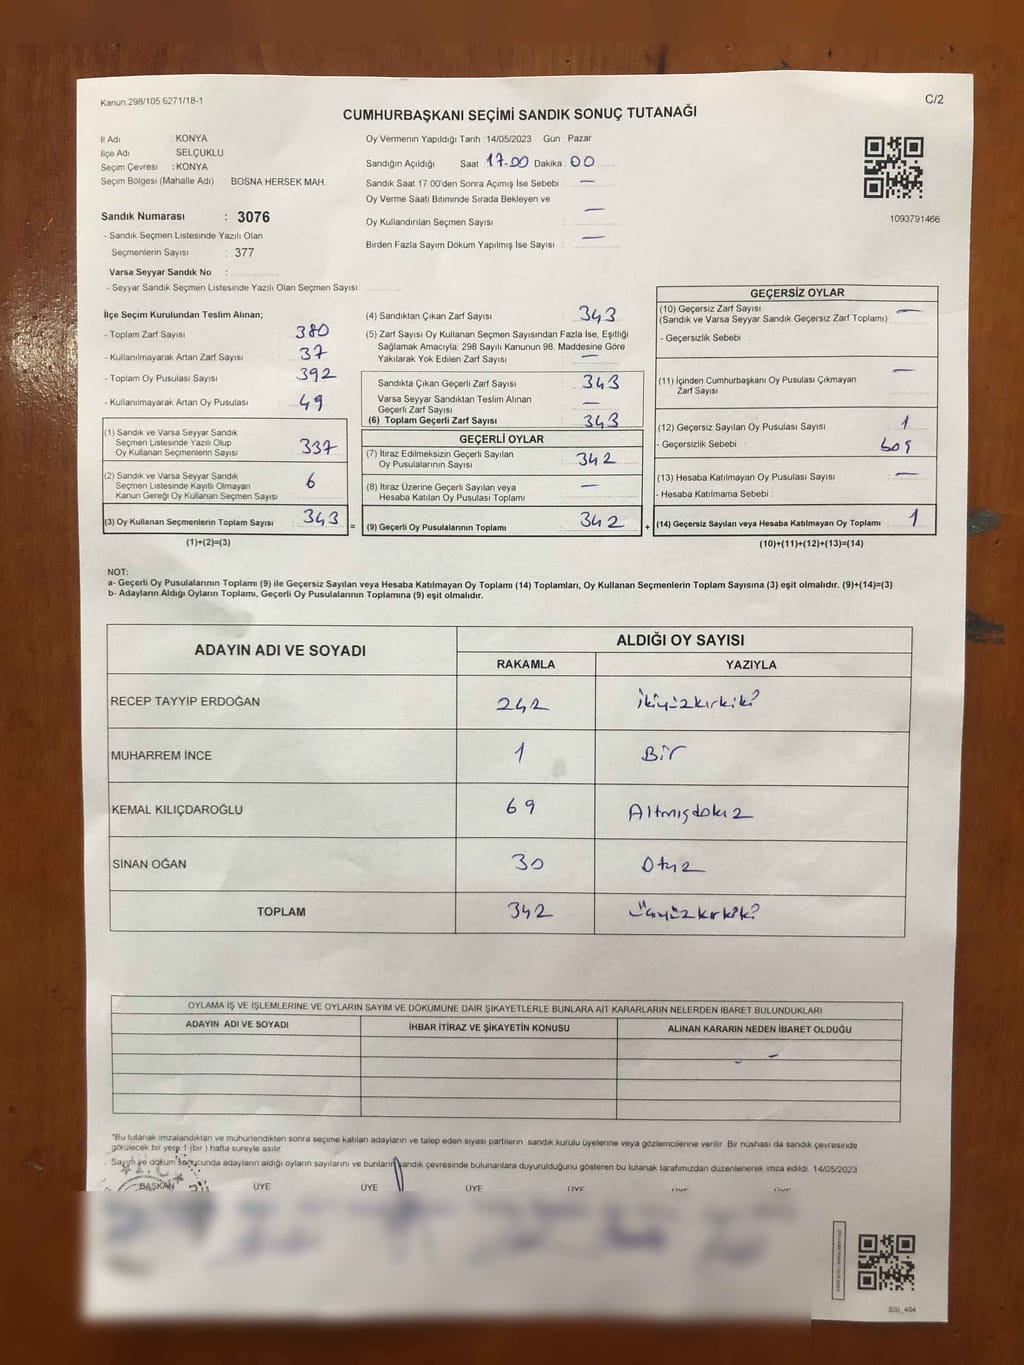 Kanun.298/105.6271/18-1
C/2
CUMHURBAŞKANI SEÇİMİ SANDIK SONUÇ TUTANAĞI
İl Adı KONYA
İlçe Adı SELÇUKLU
Seçim Çevresi : KONYA
Seçim Bölgesi (Mahalle Adı) : BOSNA HERSEK MAH.
Sandık Numarası : 3076
- Sandık Seçmen Listesinde Yazılı Olan
Seçmenlerin Sayısı : 377
Varsa Seyyar Sandık No :
- Seyyar Sandık Seçmen Listesinde Yazılı Olan Seçmen Sayısı:
Oy Vermenin Yapıldığı Tarih : 14/05/2023 Gün Pazar
Sandığın Açıldığı Saat 17.00 Dakika 00
Sandık Saat 17.00'den Sonra Açımış İse Sebebi : —
Oy Verme Saati Bitiminde Sırada Bekleyen ve
Oy Kullandırılan Seçmen Sayısı : —
Birden Fazla Sayım Döküm Yapılmış İse Sayısı : —
1093791466
İlçe Seçim Kurulundan Teslim Alınan;
- Toplam Zarf Sayısı : 380
- Kullanılmayarak Artan Zarf Sayısı : 37
- Toplam Oy Pusulası Sayısı : 392
- Kullanılmayarak Artan Oy Pusulası : 49
(1) Sandık ve Varsa Seyyar Sandık
Seçmen Listesinde Yazılı Olup
Oy Kullanan Seçmenlerin Sayısı : 337
(2) Sandık ve Varsa Seyyar Sandık
Seçmen Listesinde Kayıtlı Olmayan
Kanun Gereği Oy Kullanan Seçmen Sayısı : 6
(3) Oy Kullanan Seçmenlerin Toplam Sayısı : 343 =
(1)+(2)=(3)
(4) Sandıktan Çıkan Zarf Sayısı : 343
(5) Zarf Sayısı Oy Kullanan Seçmen Sayısından Fazla İse, Eşitliği
Sağlamak Amacıyla; 298 Sayılı Kanunun 98. Maddesine Göre
Yakılarak Yok Edilen Zarf Sayısı : —
Sandıkta Çıkan Geçerli Zarf Sayısı : 343
Varsa Seyyar Sandıktan Teslim Alınan
Geçerli Zarf Sayısı : —
(6) Toplam Geçerli Zarf Sayısı : 343
GEÇERLİ OYLAR
(7) İtiraz Edilmeksizin Geçerli Sayılan
Oy Pusulalarının Sayısı : 342
(8) İtiraz Üzerine Geçerli Sayılan veya
Hesaba Katılan Oy Pusulası Toplamı : —
(9) Geçerli Oy Pusulalarının Toplamı : 342 +
GEÇERSİZ OYLAR
(10) Geçersiz Zarf Sayısı
(Sandık ve Varsa Seyyar Sandık Geçersiz Zarf Toplamı) : —
- Geçersizlik Sebebi :
(11) İçinden Cumhurbaşkanı Oy Pusulası Çıkmayan
Zarf Sayısı : —
(12) Geçersiz Sayılan Oy Pusulası Sayısı : 1
- Geçersizlik Sebebi : boş
(13) Hesaba Katılmayan Oy Pusulası Sayısı : —
- Hesaba Katılmama Sebebi :
(14) Geçersiz Sayılan veya Hesaba Katılmayan Oy Toplamı : 1
(10)+(11)+(12)+(13)=(14)
NOT:
a- Geçerli Oy Pusulalarının Toplamı (9) ile Geçersiz Sayılan veya Hesaba Katılmayan Oy Toplamı (14) Toplamları, Oy Kullanan Seçmenlerin Toplam Sayısına (3) eşit olmalıdır. (9)+(14)=(3)
b- Adayların Aldığı Oyların Toplamı, Geçerli Oy Pusulalarının Toplamına (9) eşit olmalıdır.
ADAYIN ADI VE SOYADI ALDIĞI OY SAYISI
RAKAMLA YAZIYLA
RECEP TAYYİP ERDOĞAN 242 ikiyüzkırkiki
MUHARREM İNCE 1 Bir
KEMAL KILIÇDAROĞLU 69 Altmışdokuz
SİNAN OĞAN 30 Otuz
TOPLAM 342 üçyüzkırkiki
OYLAMA İŞ VE İŞLEMLERİNE VE OYLARIN SAYIM VE DÖKÜMÜNE DAİR ŞİKAYETLERLE BUNLARA AİT KARARLARIN NELERDEN İBARET BULUNDUKLARI
ADAYIN ADI VE SOYADI İHBAR İTİRAZ VE ŞİKAYETİN KONUSU ALINAN KARARIN NEDEN İBARET OLDUĞU
*Bu tutanak imzalandıktan ve mühürlendikten sonra seçime katılan adayların ve talep eden siyasi partilerin sandık kurulu üyelerine veya gözlemcilerine verilir. Bir nüshası da sandık çevresinde
görülecek bir yere 1 (bir) hafta süreyle asılır.
Sayım ve döküm sonucunda adayların aldığı oyların sayılarını ve bunların sandık çevresinde bulunanlara duyurulduğunu gösteren bu tutanak tarafımızdan düzenlenerek imza edildi. 14/05/2023
BAŞKAN ÜYE ÜYE ÜYE ÜYE ÜYE ÜYE